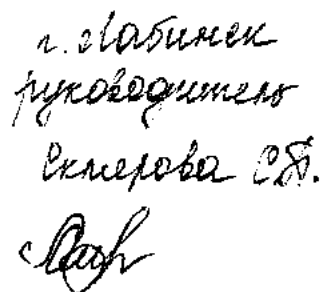 г. Лабинск
руководитель
Склерова С.Т.